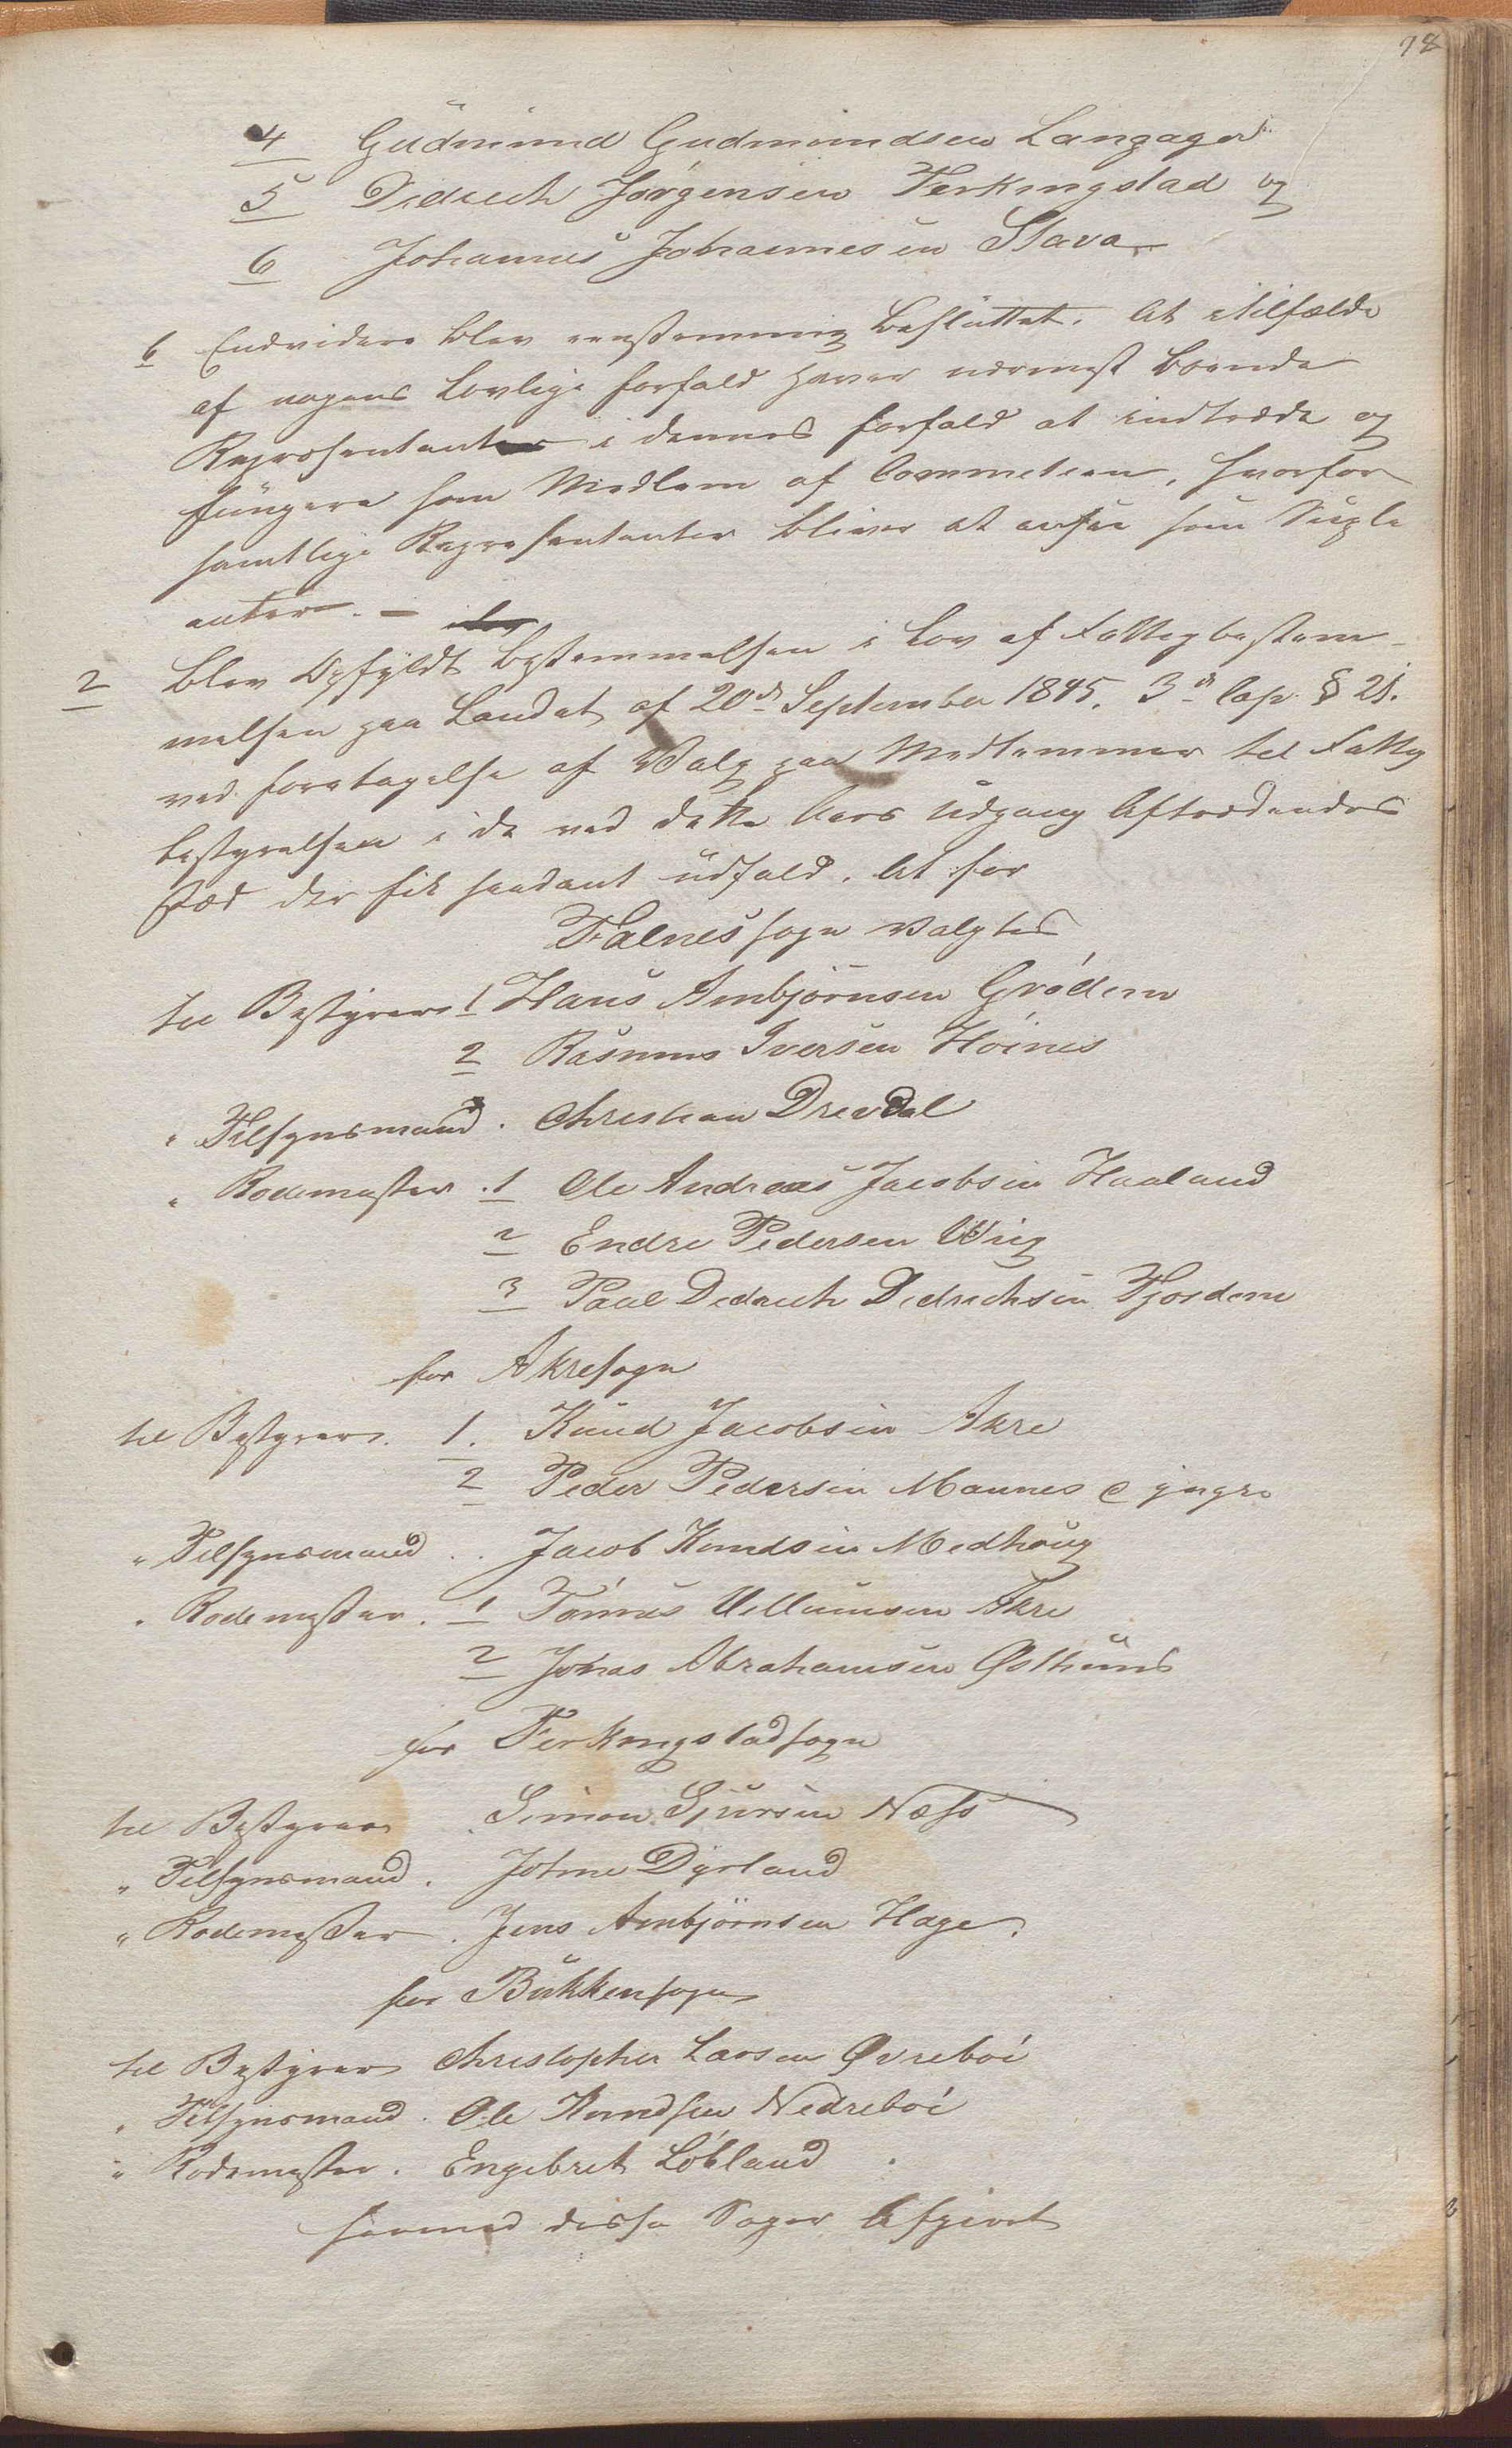 78
4 Gudmund Gudmundsen Langager
5 Didrich Jørgensen Ferkingstad og
6 Johannes Johannesen Stava
6 Endvidere blev eenstemmig besluttet. At i tilfælde
af nogens Lovlige forfald haver nermest boende
Representant i dennes forfald at indtræde og
fungere som Medlem af Commeteen, hvorfor
samtlige Representanter bliver at ansee som Suple
anter. -
2 blev Opfyldt bestemmelsen i Lov af Fattigbestem-
melsen paa Landet af 20de September 1845. 3de Cap. § 21.
ved foretagelse af Valg paa Medlemmer til Fattig
bestyrelsen i de ved dette Aars Udgang Aftrædendes
sted der fik saadant udfald. At for
Falnes sogn valgtes
til Bestyrer 1 Hans Ambjörnsen Grødem
2 Rasmus Iversen Høines
" Tilsynsmand . Christian Drevdal
" Rodemester . 1 Ole Andreas Jacobsen Haaland
2 Endre Pedersen Wiig
3 Paul Didrich Didrichsen Fjordene
for Akresogn
til Bestyrer. 1. Knud Jacobsen Akre
2 Peder Pedersen Mannes d yngre
" Tilsynsmand . . Jacob Knudsen Medhaug
" Rodemester . 1 Tönnes Villumsen Akre
2 Jonas Abrahamsen Østhuus
for Ferkingstadsogn
til Bestyrer . Simon Sjursen Næss
" Tilsynsmand . Johne Dyrland
" Rodemester . Jens Ambjörnsen Hage.
for Bukkensogn
til Bestyrer Christopher Larsen Øvrebøe
" Tilsynsmand . Ole Knudsen Nedrebøe
" Rodemester . Engebret Løbland .
hermed disse Sager Afgiort